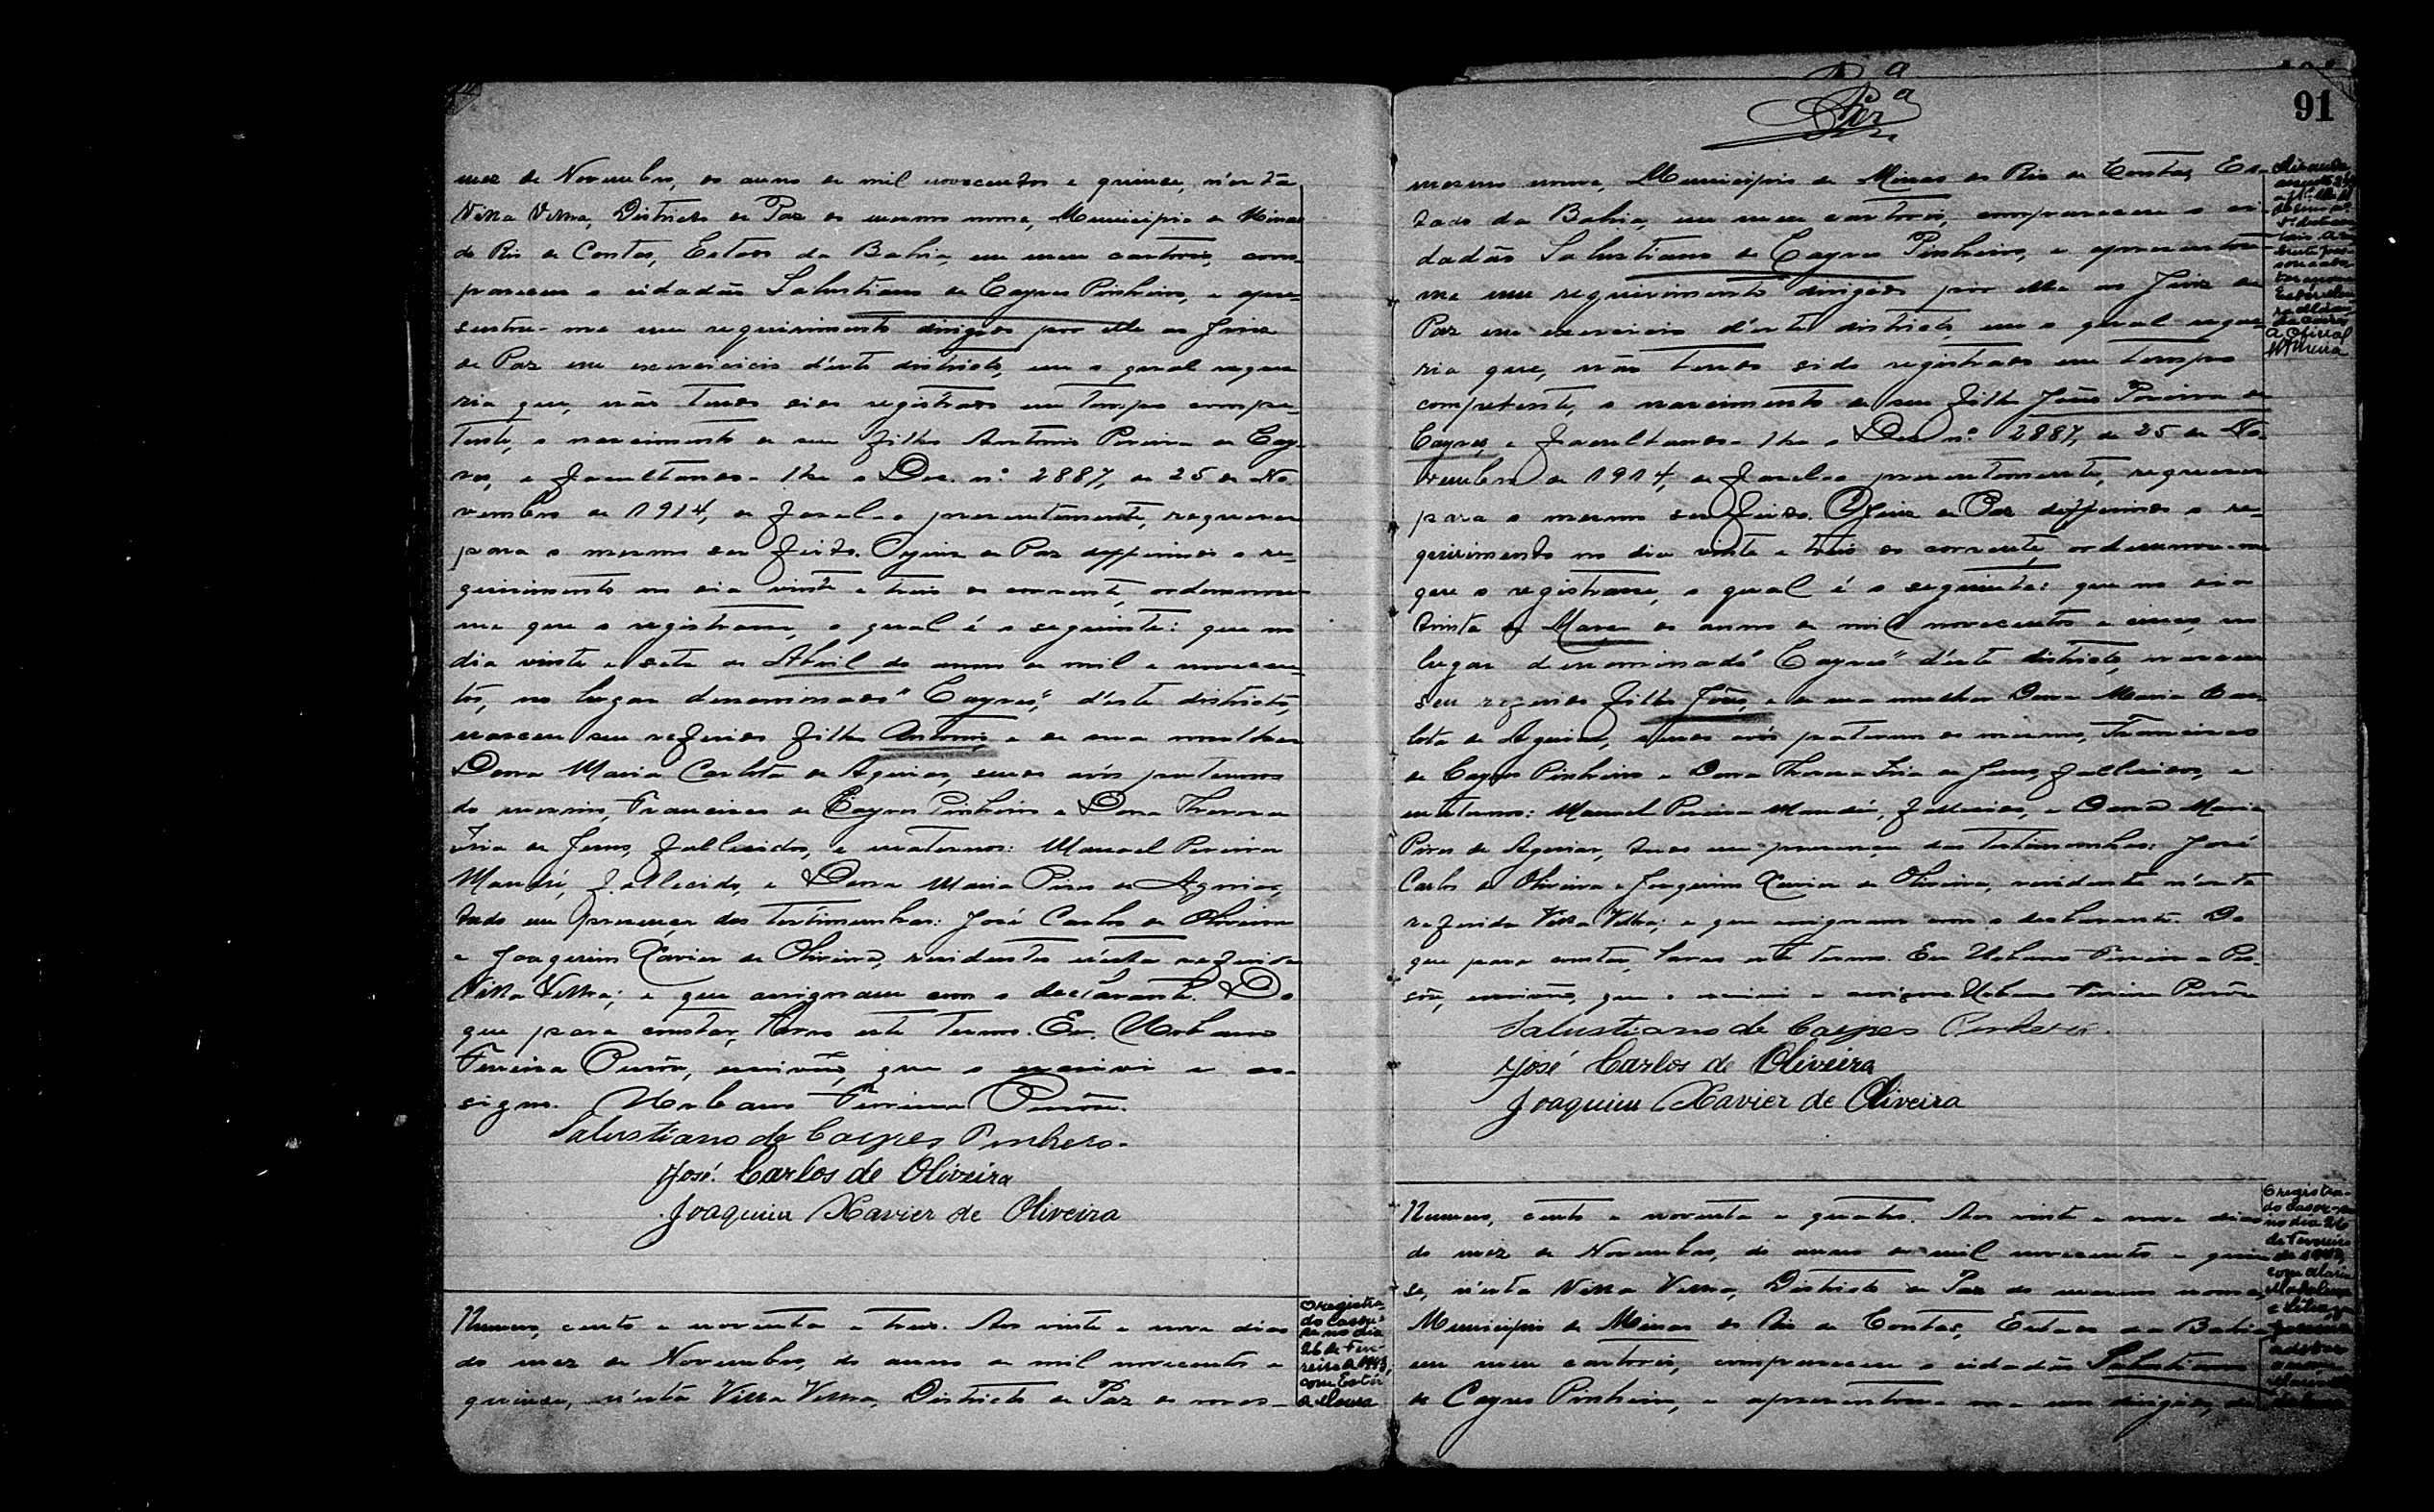 mez de Novembro, do anno de mil novecentos e quinze, n'esta
Villa Velha, Districto de Paz do mesmo nome, Municipio de Minas
do Rio de Contas, Estado da Bahia, em meu cartorio, com-
pareceu o cidadão Salustiano de Cayres Pinheiro, e apre-
sentou-me um requerimento dirigido por elle ao Juiz
de Paz em exercicio d'este districto, em o qual reque-
ria que, não tendo sido registrado em tempo compe-
tente, o nascimento de seu filho Antonio Pereira de Cay-
res, e facultando-lhe o Dec. nº 2887, de 25 de No-
vembro de 1914, de fazel-o presentemente, requerer
para o mesmo ser feito. O Juiz de Paz defferindo o re-
querimento no dia vinte e tres do corrente, ordenou-
me que o registrasse, o qual é o seguinte: que no
dia vinte e sete de Abril do anno de mil e novecen-
tos, no lugar denominado "Cayres", d'este districto,
nasceu seu referido filho Antonio, e de sua mulher
Dona Maria Carlota de Aguiar, sendo avós paternos
do mesmo, Francisco de Cayres Pinheiro e Dona Thereza
Iria de Jesus, fallecidos, e maternos: Manoel Pereira
Mandú, fallecido, e Dona Maria Pires de Aguiar,
tudo em presença das testimunhas: José Carlos de Oliveira
e Joaquim Xavier de Oliveira, residentes n'esta referida
Villa Velha; e que assignaram com o declarante. Do
que para constar, lavro este termo. Eu, Urbano
Ferreira Pessôa, escrivão, que o escrevi e as-
signo. Urbano Ferreira Pessôa.
Salustiano de Cayres Pinheiro.
José Carlos de Oliveira
Joaquim Xavier de Oliveira
Numero, cento e noventa e tres. Aos vinte e nove dias
do mez de Novembro, do anno de mil novecentos e
quinze, n'esta Villa Velha, Districto de Paz do mes-
O registra-
do casou-
se no dia
26 de Feve-
reiro de
com
91
mesmo nome, Municipio de Minas do Rio de Contas, Es-
tado da Bahia, em meu cartorio, compareceu o ci-
dadão Salustiano de Cayres Pinheiro, e apresentou-
me um requerimento dirigido por elle ao Juiz de
Paz em exercicio d'este districto, em o qual reque-
ria que, não tendo sido registrado em tempo
competente, o nascimento de seu filho João Pereira de
Cayres, e facultando-lhe o Dec. nº 2887, de 25 de No-
vembro de 1914, de fazel-o presentemente, requerer
para o mesmo ser feito. O Juiz de Paz defferindo o re-
querimento no dia vinte e tres do corrente, ordenou-me
que o registrasse, o qual é o seguinte: que no dia
trinta de do anno de mil novecentos e cinco, no
lugar denominado "Cayres" d'este districto, nasceu
seu referido filho João, e de sua mulher Dona Maria Car-
lota de Aguiar, sendo avós paternos do mesmo, Francisco
de Cayres Pinheiro e Dona Thereza Iria de Jesus, fallecidos, e
maternos: Manoel Pereira Mandú, fallecido, e Dona Maria
Pires de Aguiar, tudo em presença das testimunhas: José
Carlos de Oliveira e Joaquim Xavier de Oliveira, residentes n'esta
referida Villa Velha; e que assignaram com o declarante. Do
que para constar, lavro este termo. Eu Urbano Ferreira Pes-
sôa, escrivão, que o escrevi e assigno. Urbano Ferreira Pessôa
Salustiano de Cayres Pinheiro.
José Carlos de Oliveira
Joaquim Xavier de Oliveira
Numero, cento e noventa e quatro. Aos vinte e nove dias
do mez de Novembro, do anno de mil novecentos e quin-
ze, n'esta Villa Velha, Districto de Paz do mesmo nome,
Municipio de Minas do Rio de Contas, Estado da Bahia
em meu cartorio, compareceu o cidadão Salustiano
de Cayres Pinheiro, e apresentou-me um dirigido,
O Official
O registra-
do casou-se
no dia 26
de Fevereiro